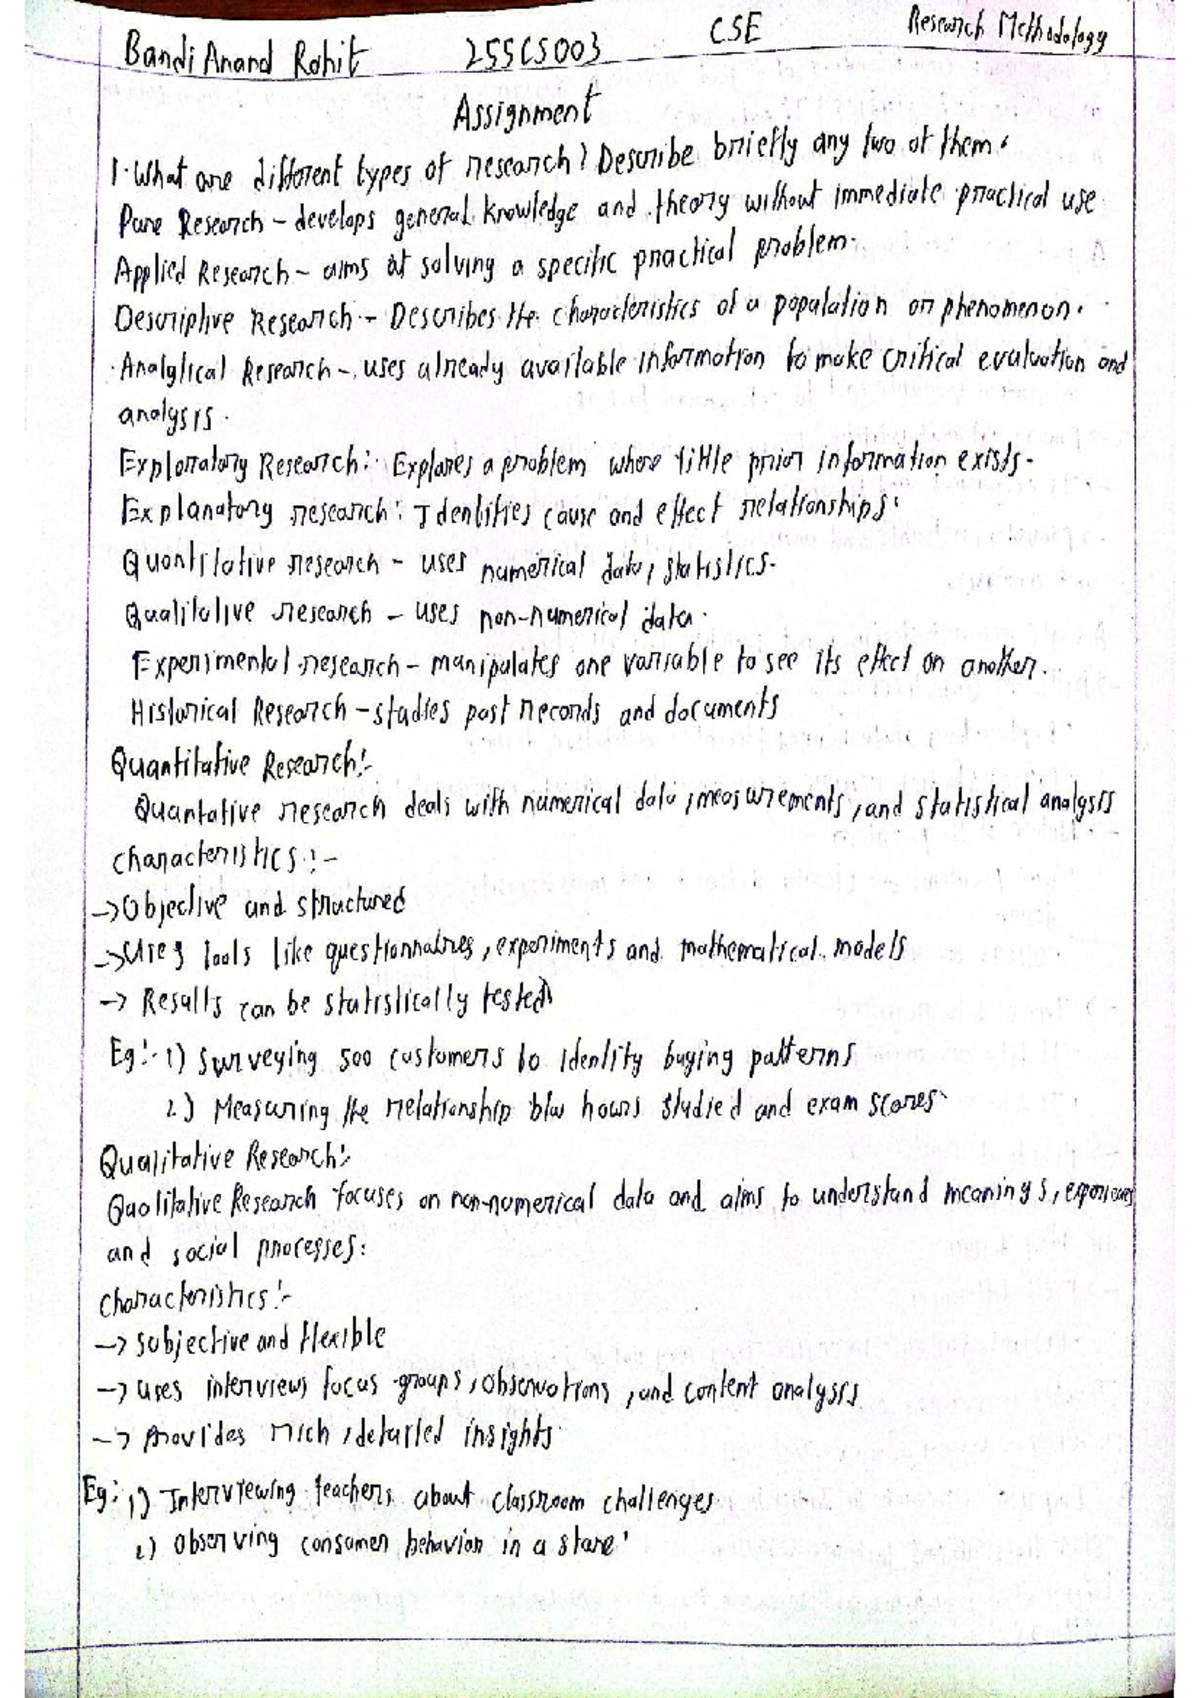 Bandi Anand Rohit 25SCS003 CSE Research Methodology
Assignment
1. What are different types of research? Describe briefly any two of them.
Pure Research - develops general knowledge and theory without immediate practical use
Applied Research - aims at solving a specific practical problem.
Descriptive Research - Describes the characteristics of a population or phenomenon.
Analytical Research - uses already available information to make critical evaluation and
analysis.
Exploratory Research: Explores a problem where little prior information exists.
Explanatory research: Identifies cause and effect relationships.
Quantitative research - uses numerical data, statistics.
Qualitative research - uses non-numerical data.
Experimental research - manipulates one variable to see its effect on another.
Historical Research - studies past records and documents
Quantitative Research:-
Quantative research deals with numerical data, measurements, and statistical analysis
characteristics:-
→ Objective and structured
→ Uses tools like questionnaires, experiments and mathematical models
→ Results can be statistically tested
Eg:- 1) Surveying 500 customers to identity buying patterns
2) Measuring the relationship b/w hours studied and exam scores
Qualitative Research:-
Qualitative Research focuses on non-numerical data and aims to understand meanings, experiences
and social processes.
characteristics:-
→ subjective and flexible
→ uses interviews focus groups, observations, and content analysis
→ provides rich, detailed insights
Eg: 1) Interviewing teachers about classroom challenges
2) Observing consumer behavior in a store